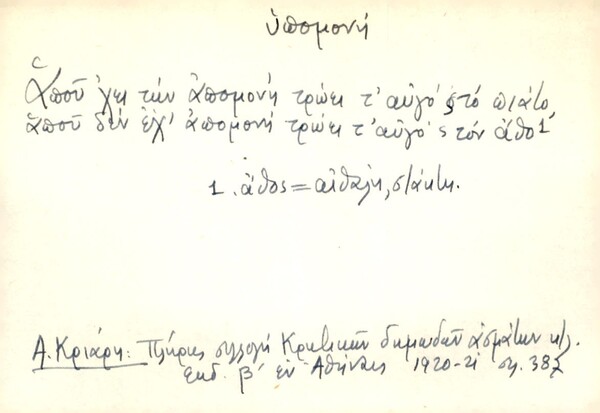 ὑπομονή
Ἁποῦ ἔχει τὴν ἀπομονὴ τρώει τ' αὐγό 'ς τό πιάτο
ἁποῦ δὲν ἔχ' ἀπομονὴ τρώει τ' αὐγό 'ς τὸν ἄθο 1
1. ἄθος = αἰθάλη, στάκτη.
Α. Κριάρη: Πλήρης συλλογὴ Κρητικῶν δημωδῶν ἀσμάτων κτλ.
ἐκδ. β' ἐν Ἀθήναις 1920-21 σ. 387